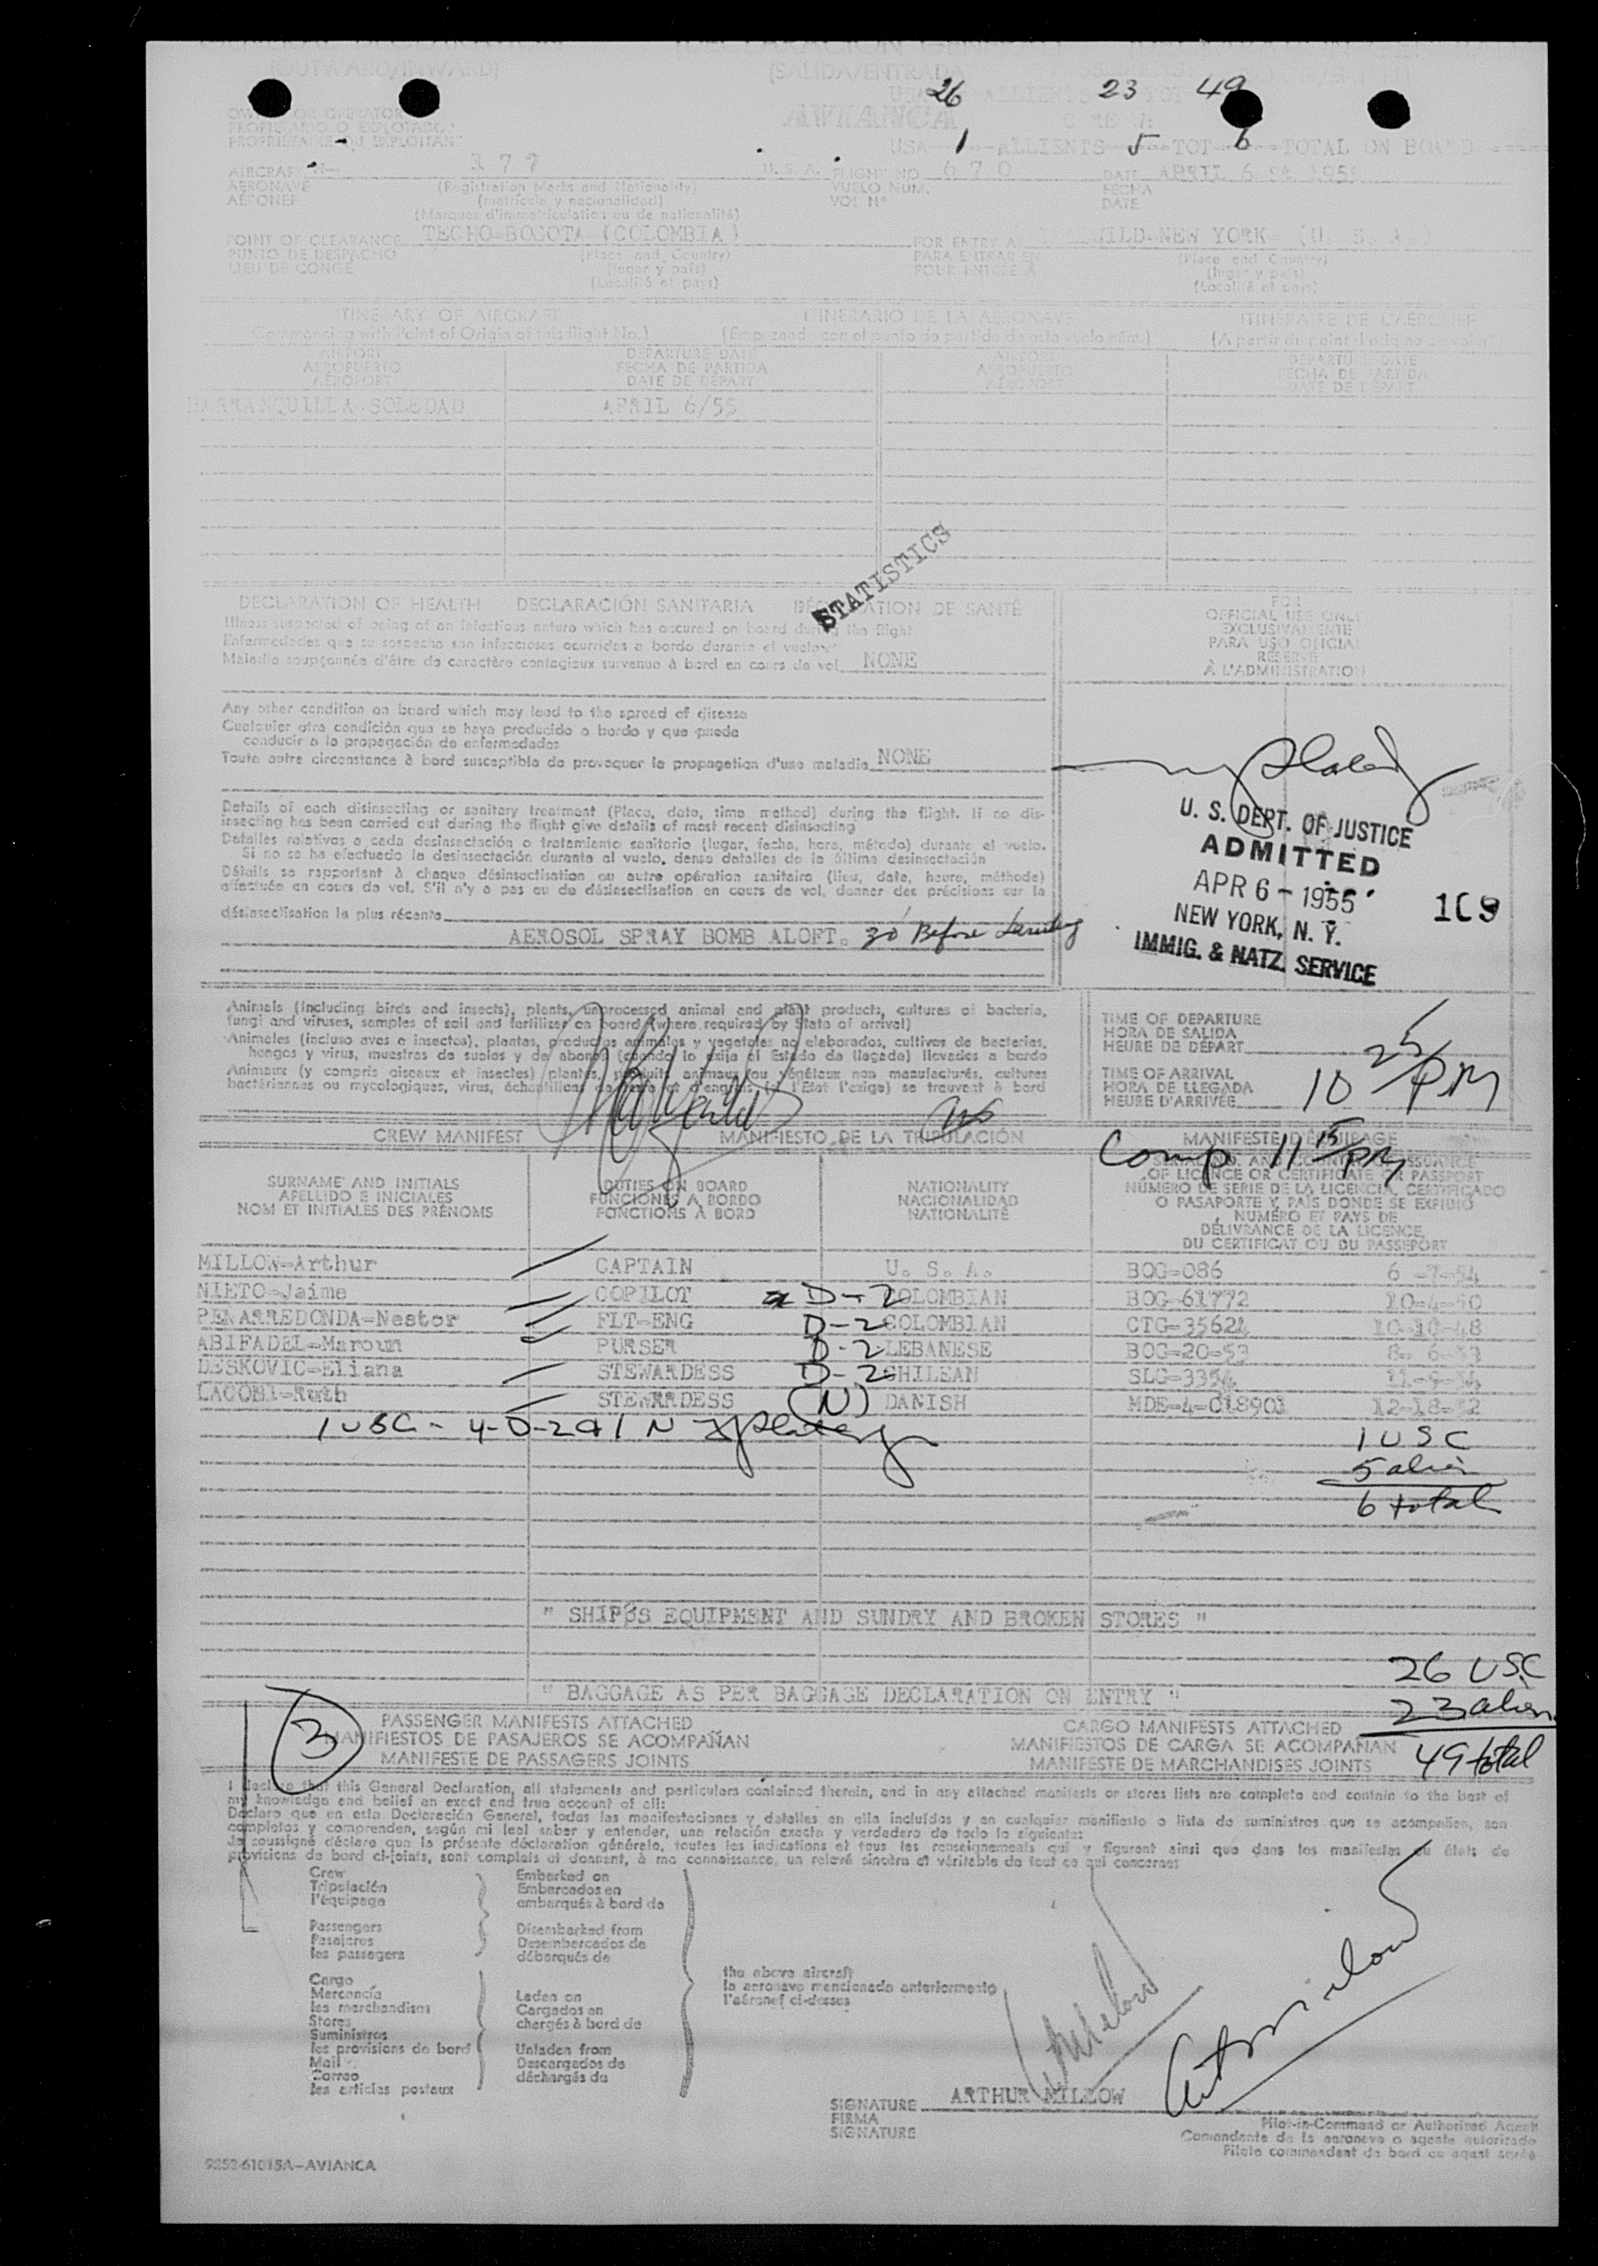 (OUTWARD/INWARD) (SALIDA/ENTRADA
26 ALLIENTS 23 TOT 49
OWNER OR OPERATOR
PROPIETARIO O EXPLOTADOR
PROPRIÉTAIRE OU EXPLOITANT
AVIANCA
USA 1 ALLIENTS 5 TOT 6 TOTAL ON BOARD
AIRCRAFT N- 177 U. S. A. FLIGHT NO. 670 DATE APRIL 6
AERONAVE (Registration Marks and Nationality) VUELO NUM. FECHA
AÉRONEF (matrícula y nacionalidad) VOL Nº DATE
(Marques d'immatriculation ou de nationalité)
POINT OF CLEARANCE TECHO-BOGOTA (COLOMBIA) FOR ENTRY AT NEW YORK (U. S. A.)
PUNTO DE DESPACHO (Place and Country) PARA ENTRAR EN (Place and Country)
LIEU DE CONGÉ (lugar y país) POUR ENTRÉE À (lugar y país)
(Localité et pays) (Localité et pays)
ITINERARY OF AIRCRAFT ITINERARIO DE LA AERONAVE ITINÉRAIRE DE L'AÉRONEF
(Commencing with Point of Origin of this flight No.) (Empezando con el punto de partida de este vuelo núm.)
AIRPORT DEPARTURE DATE AIRPORT DEPARTURE DATE
AEROPUERTO FECHA DE PARTIDA AEROPUERTO FECHA DE PARTIDA
AÉROPORT DATE DE DÉPART AÉROPORT DATE DE DÉPART
BARRANQUILLA SOLEDAD APRIL 6/55
STATISTICS
DECLARATION OF HEALTH DECLARACIÓN SANITARIA DÉCLARATION DE SANTÉ
Illness suspected of being of an infectious nature which has occured on board during the flight
Enfermedades que se sospecha son infecciosas ocurridas a bordo durante el vuelo
Maladie soupçonnée d'être de caractère contagieux survenue à bord en cours de vol NONE
FOR
OFFICIAL USE ONLY
EXCLUSIVAMENTE
PARA USO OFICIAL
RÉSERVÉ
À L'ADMINISTRATION
Any other condition on board which may lead to the spread of disease
Cualquier otra condición que se haya producido a bordo y que pueda
conducir a la propagación de enfermedades
Toute autre circonstance à bord susceptible de provoquer la propagation d'une maladie NONE
Details of each disinsecting or sanitary treatment (Place, date, time method) during the flight. If no dis-
insecting has been carried out during the flight give details of most recent disinsecting
Detalles relativos a cada desinsectación o tratamiento sanitario (lugar, fecha, hora, método) durante el vuelo.
Si no se ha efectuado la desinsectación durante el vuelo, dense detalles de la última desinsectación
Détails se rapportant à chaque désinsectisation ou autre opération sanitaire (lieu, date, heure, méthode)
effectuée en cours de vol. S'il n'y a pas eu de désinsectisation en cours de vol, donner des précisions sur la
désinsectisation la plus récente
AEROSOL SPRAY BOMB ALOFT. 30' Before Landing
U. S. DEPT. OF JUSTICE
ADMITTED
APR 6 - 1955
NEW YORK, N. Y.
IMMIG. & NATZ. SERVICE
109
Animals (including birds and insects), plants, unprocessed animal and plant products, cultures of bacteria,
fungi and viruses, samples of soil and fertilizer on board (where required by State of arrival)
Animales (incluso aves e insectos), plantas, productos animales y vegetales no elaborados, cultivos de bacterias,
hongos y virus, muestras de suelos y de abonos (cuando lo exija el Estado de llegada) llevados a bordo
Animaux (y compris oiseaux et insectes) plantes, produits animaux ou végétaux non manufacturés, cultures
bactériennes ou mycologiques, virus, échantillons de terre et d'engrais (si l'Etat l'exige) se trouvent à bord
TIME OF DEPARTURE
HORA DE SALIDA
HEURE DE DÉPART
TIME OF ARRIVAL
HORA DE LLEGADA 10 25/PM
HEURE D'ARRIVÉE
CREW MANIFEST MANIFIESTO DE LA TRIPULACIÓN MANIFESTE D'ÉQUIPAGE
Comp 11 15/PM
SURNAME AND INITIALS
APELLIDO E INICIALES
NOM ET INITIALES DES PRÉNOMS
DUTIES ON BOARD
FUNCIONES A BORDO
FONCTIONS À BORD
NATIONALITY
NACIONALIDAD
NATIONALITÉ
OF LICENCE OR CERTIFICATE OR PASSPORT
NÚMERO DE SERIE DE LA LICENCIA, CERTIFICADO
O PASAPORTE Y PAÍS DONDE SE EXPIDIÓ
NUMÉRO ET PAYS DE
DÉLIVRANCE DE LA LICENCE,
DU CERTIFICAT OU DU PASSEPORT
MILLOW-Arthur CAPTAIN U. S. A. BOG-086 6 -7-54
NIETO-Jaime COPILOT D-2 COLOMBIAN BOG-61772 10-4-50
PENARREDONDA-Nestor FLT-ENG D-2 COLOMBIAN CTG-35624 10-10-48
ABIFADEL-Maroun PURSER D-2 LEBANESE BOG-20-53 8- 6-53
DESKOVIC-Eliana STEWARDESS D-2 CHILEAN SLG-3354 11-9-54
CACOBI-Ruth STEWARDESS (N) DANISH MDE-4-018901 12-18-52
1 USC - 4-D-2 & 1 N
1 USC
5 alien
6 total
" SHIP'S EQUIPMENT AND SUNDRY AND BROKEN STORES "
26 USC
" BAGGAGE AS PER BAGGAGE DECLARATION ON ENTRY "
23 alien
49 total
3
PASSENGER MANIFESTS ATTACHED
MANIFIESTOS DE PASAJEROS SE ACOMPAÑAN
MANIFESTE DE PASSAGERS JOINTS
CARGO MANIFESTS ATTACHED
MANIFIESTOS DE CARGA SE ACOMPAÑAN
MANIFESTE DE MARCHANDISES JOINTS
I declare that this General Declaration, all statements and particulars contained therein, and in any attached manifests or stores lists are complete and contain to the best of
my knowledge and belief an exact and true account of all:
Declaro que en esta Declaración General, todas las manifestaciones y detalles en ella incluídos y en cualquier manifiesto o lista de suministros que se acompañen, son
completos y comprenden, según mi leal saber y entender, una relación exacta y verdadera de todo lo siguiente:
Je soussigné déclare que la présente déclaration générale, toutes les indications et tous les renseignements qui y figurent ainsi que dans les manifestes ou états de
provisions de bord ci-joints, sont complets et donnent, à ma connaissance, un relevé sincère et véritable de tout ce qui concerne:
Crew
Tripulación
l'équipage
Passengers
Pasajeros
les passagers
Cargo
Mercancía
les marchandises
Stores
Suministros
les provisions de bord
Mail
Correo
les articles postaux
Embarked on
Embarcados en
embarqués à bord de
Disembarked from
Desembarcados de
débarqués de
Laden on
Cargados en
chargés à bord de
Unladen from
Descargados de
déchargés du
the above aircraft
la aeronave mencionada anteriormente
l'aéronef ci-dessus
SIGNATURE ARTHUR MILLOW
FIRMA
SIGNATURE
Pilot-in-Command or Authorized Agent
Comandante de la aeronave o agente autorizado
Pilote commandant de bord ou agent agréé
9252-61015A-AVIANCA